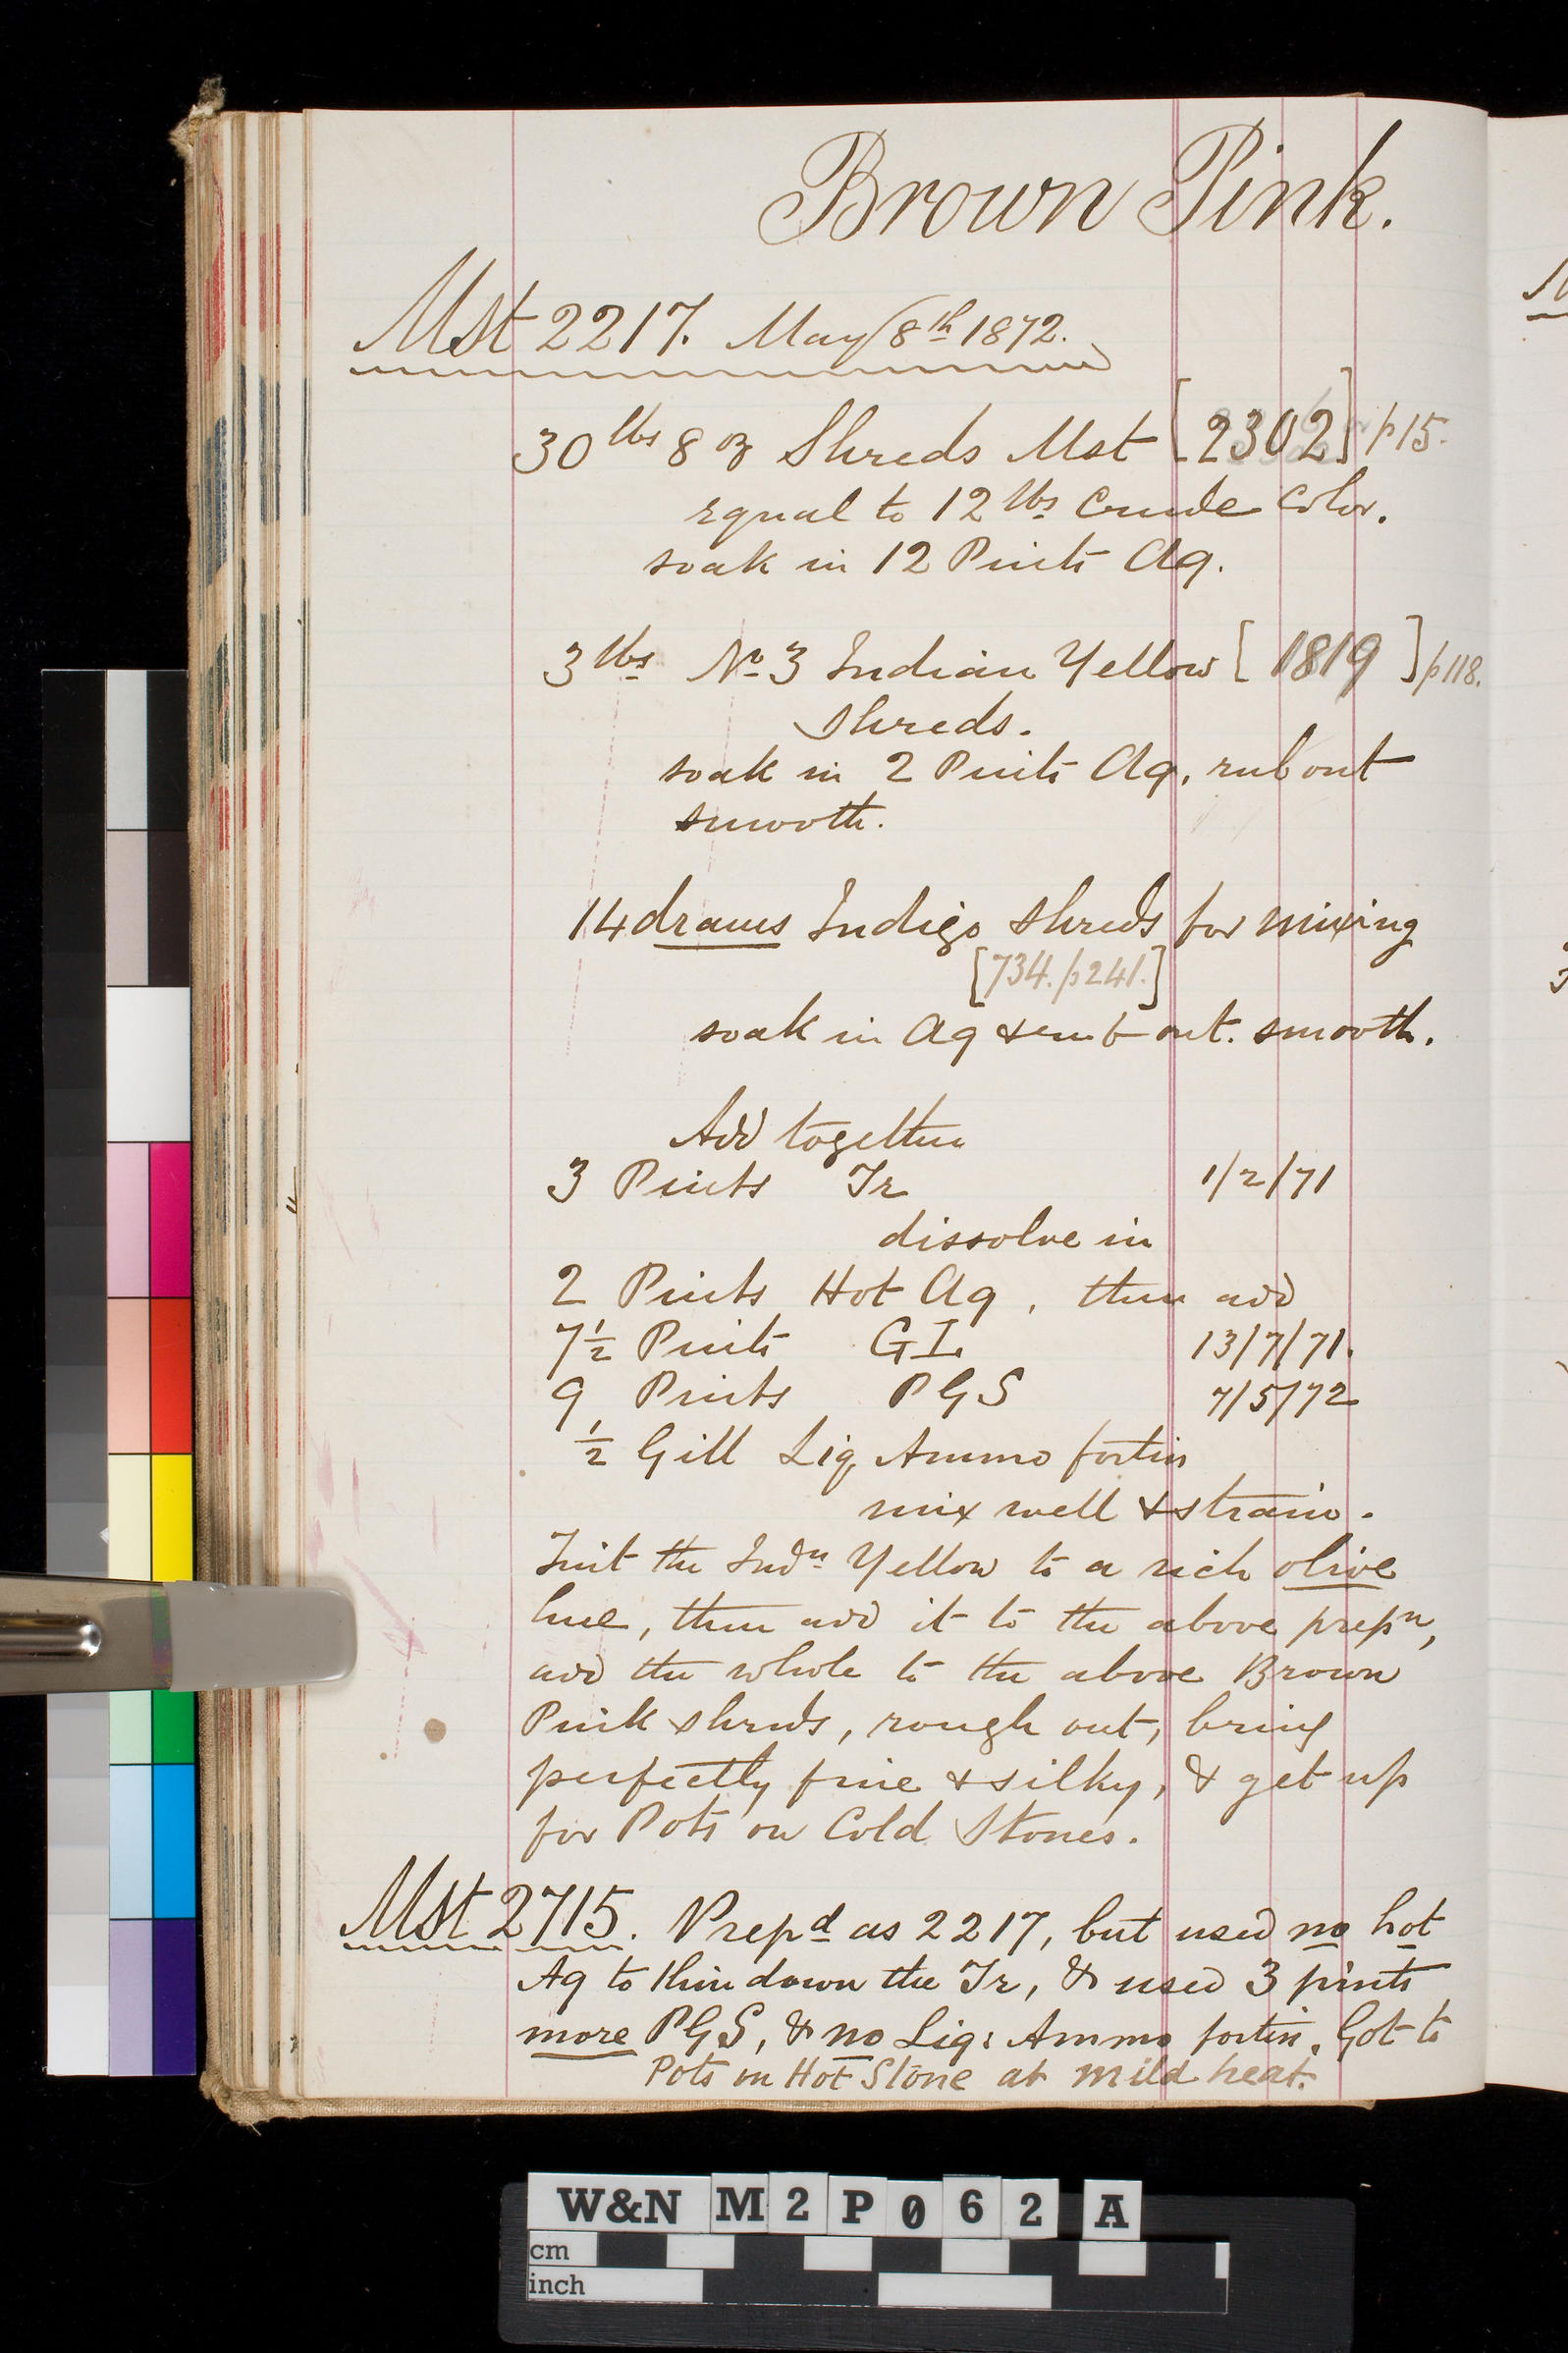 Brown Pink.
Mst 2217. May 8th 1872.
30 lbs 8 oz Shreds Mst [2302] p15.
equal to 12 lbs Crude Color.
soak in 12 Pints Aq.
3 lbs No 3 Indian Yellow [1819] p118.
shreds.
soak in 2 Pints Aq, rub out
smooth.
14 drams Indigo shreds for mixing
[734. p241.]
soak in Aq & rub out. smooth.
Add together
3 Pints Tr 1/2/71
dissolve in
2 Pints Hot Aq, then add
7½ Pints GI 13/7/71.
9 Pints PGS 7/5/72
½ Gill Liq Ammo fortis
mix well & strain.
Tint the Indn Yellow to a rich olive
hue, then add it to the above prepn,
add the whole to the above Brown
Pink shreds, rough out, bring
perfectly fine & silky, & get up
for Pots on Cold Stones.
Mst 2715. Prepd as 2217, but used no hot
Aq to thin down the Tr, & used 3 pints
more PGS, & no Liq: Ammo fortis. Got to
Pots on Hot Stone at mild heat.
W&N M2P062 A
cm
inch